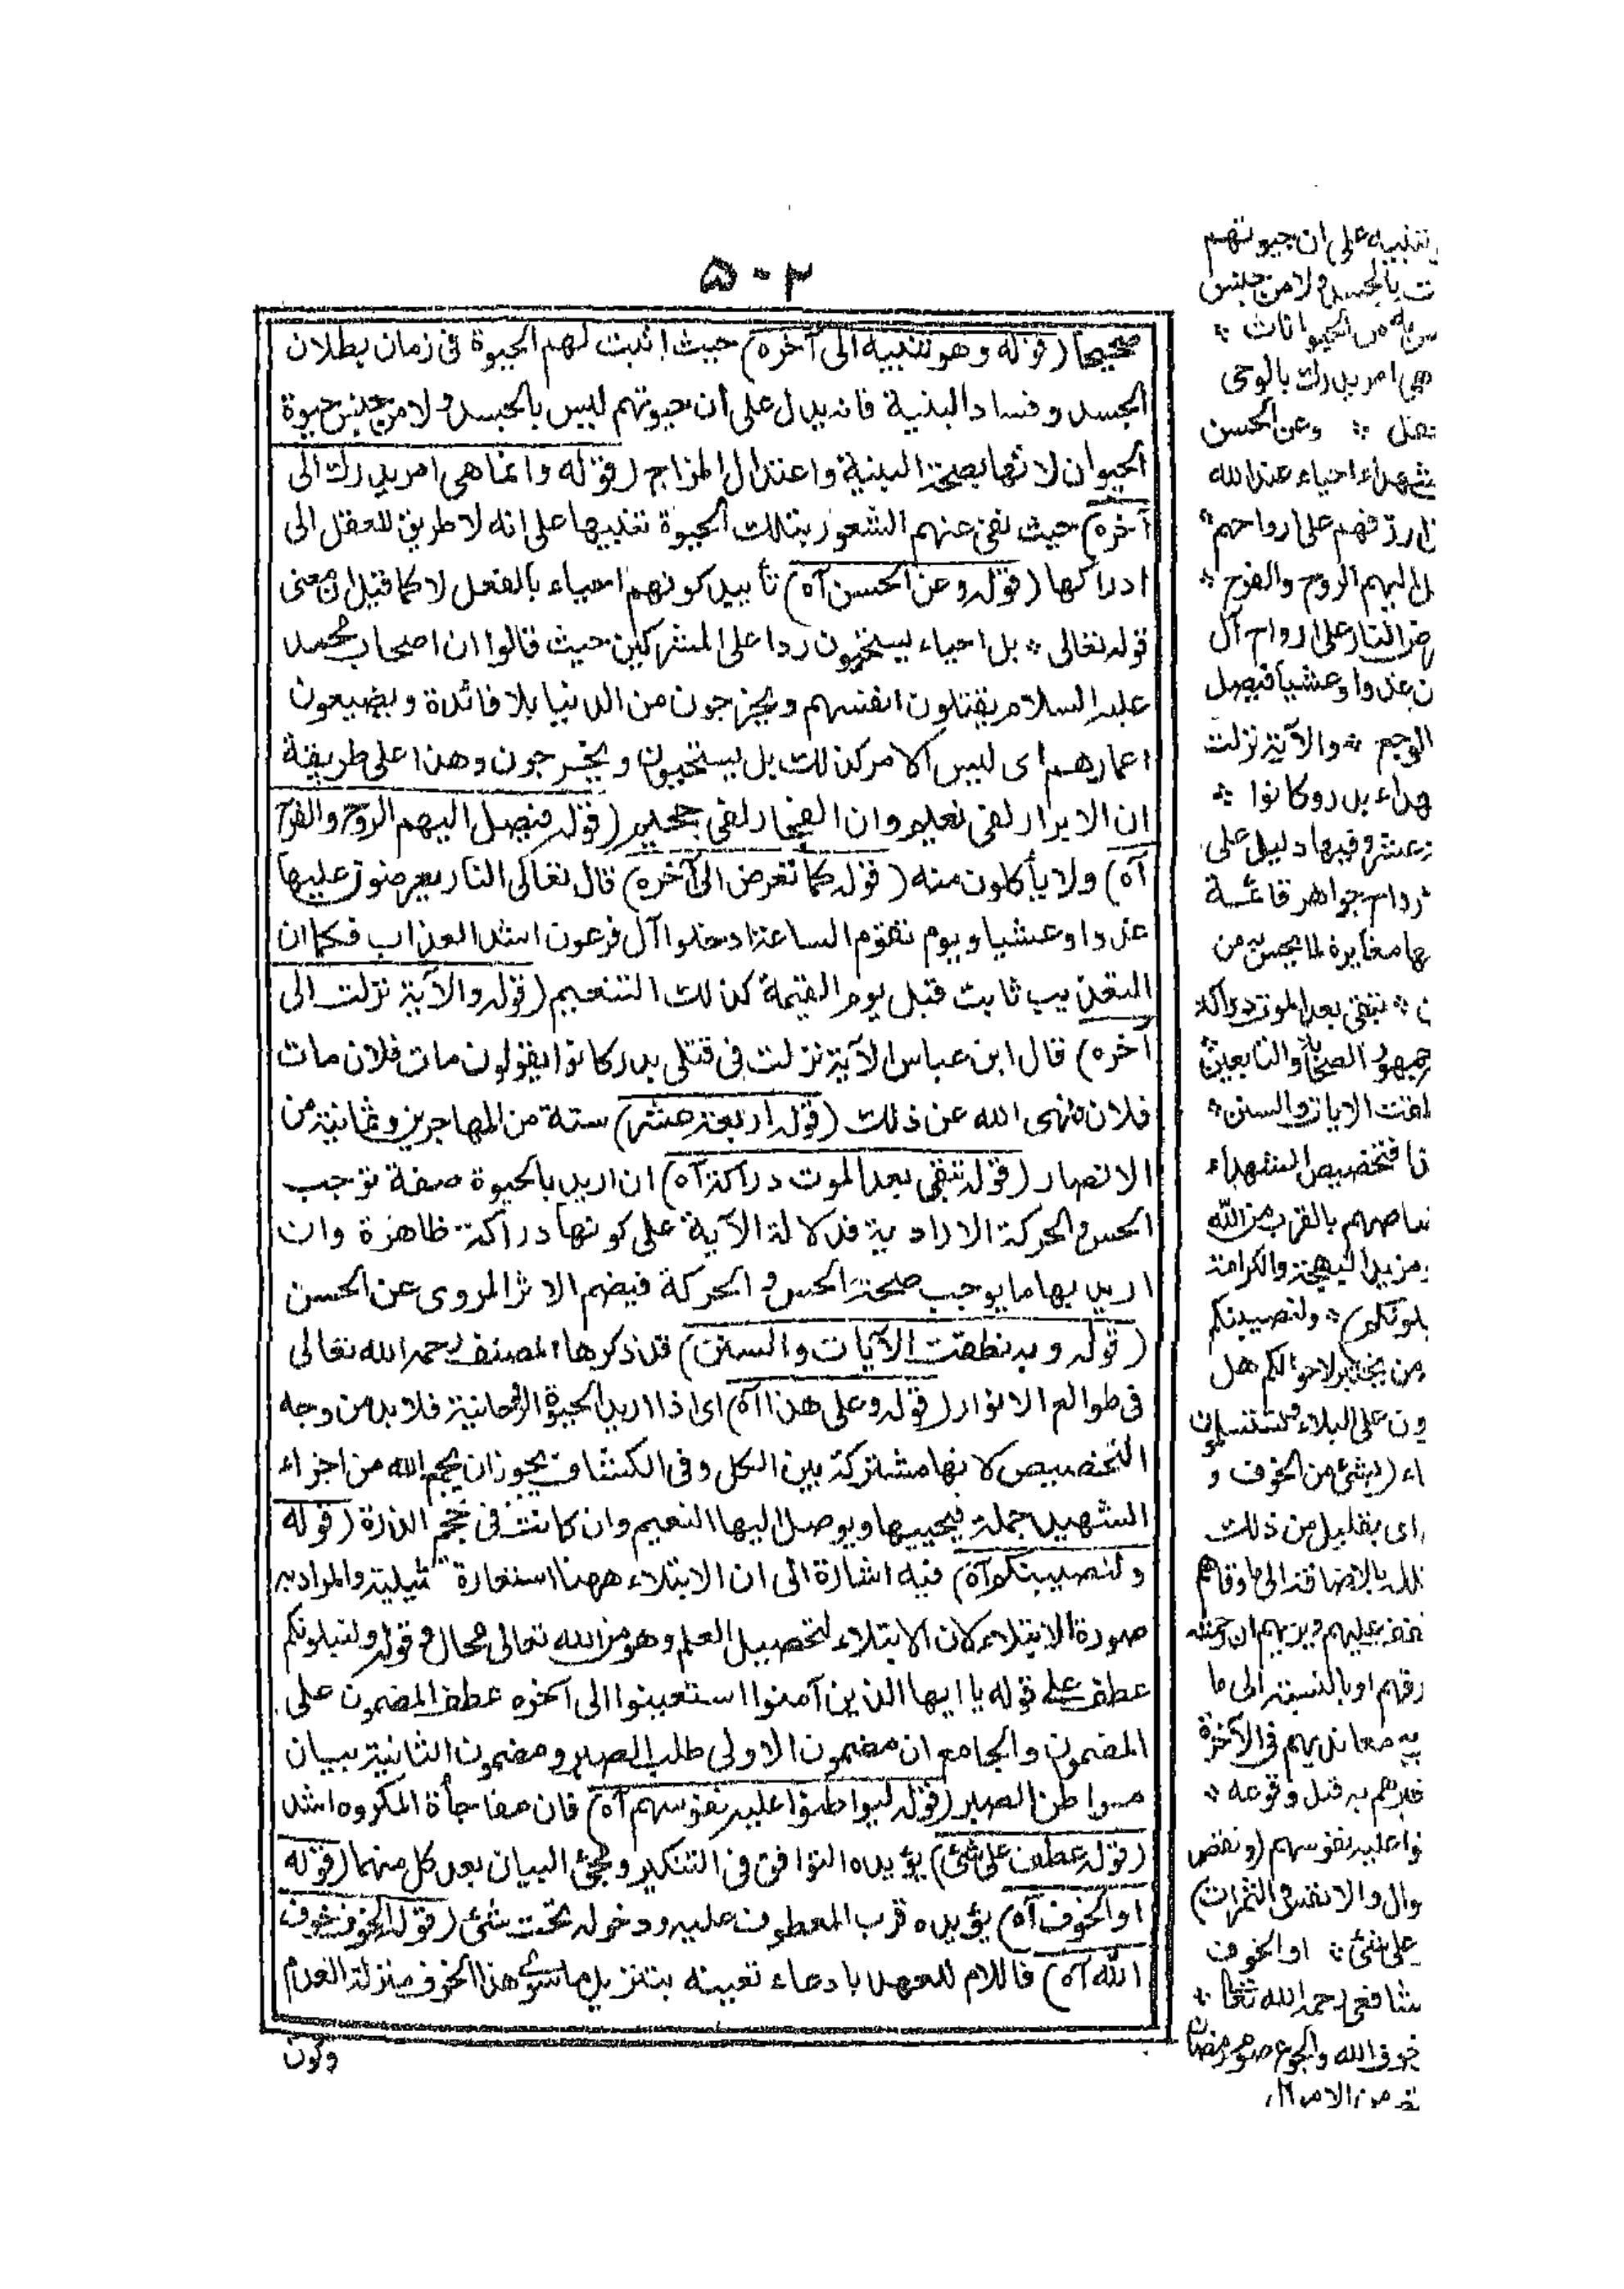 ۵۰۲
صحيحا (قوله وهو تنبيه الى آخره) حيث اثبت لهم الحيوة فى زمان بطلان
الجسد وفساد البنية فانه يدل على ان حيوتهم ليس بالجسد ولا من جنس حيوة
الحيوان لانها بصحة البنية واعتدال المزاج (قوله وانما هى امر يدرك الى
آخره) حيث نفى عنهم الشعور بتلك الحيوة تنبيها على انه لا طريق للعقل الى
ادراكها (قوله وعن الحسن آه) تأييد كونهم احياء بالفعل لا كما قيل ان معنى
قوله تعالى * بل احياء يستحيون ردا على المشركين حيث قالوا ان اصحاب محمد
عليه السلام يقتلون انفسهم ويخرجون من الدنيا بلا فائدة ويضيعون
اعمارهم اى ليس الامر كذلك بل يستحيون ويخرجون وهذا على طريقة
ان الابرار لفى نعيم وان الفجار لفى جحيم (قوله فيصل اليهم الروح والفرح
آه) ولا يأكلون منه (قوله كما تعرض الى آخره) قال تعالى النار يعرضون عليها
غدوا وعشيا ويوم تقوم الساعة ادخلوا آل فرعون اشد العذاب فكما ان
التعذيب ثابت قبل يوم القيمة كذلك التنعيم (قوله والآية نزلت الى
آخره) قال ابن عباس الآية نزلت فى قتلى بدر كانوا يقولون مات فلان مات
فلان فنهى الله عن ذلك (قوله اربعة عشر) ستة من المهاجرين وثمانية من
الانصار (قوله تبقى بعد الموت دراكة آه) ان اريد بالحيوة صفة توجب
الحس والحركة الارادية فدلالة الآية على كونها دراكة ظاهرة وان
اريد بها ما يوجب صحة الحس والحركة فيضم الاثر المروى عن الحسن
(قوله وبه نطقت الآيات والسنن) قد ذكرها المصنف رحمه الله تعالى
فى طوالع الانوار (قوله وعلى هذا آه) اى اذا اريد الحيوة الروحانية فلا بد من وجه
التخصيص لانها مشتركة بين الكل وفى الكشاف يجوز ان يجمع الله من اجزاء
الشهيد جملة فيحييها ويوصل اليها النعيم وان كانت فى حجم الذرة (قوله
ولنصيبنكم آه) فيه اشارة الى ان الابتلاء ههنا استعارة تمثيلية والمراد به
صورة الابتلاء لان الابتلاء لتحصيل العلم وهو من الله تعالى محال وقوله ولنبلونكم
عطف على قوله يا ايها الذين آمنوا استعينوا الى آخره عطف المضمون على
المضمون والجامع ان مضمون الاولى طلب الصبر ومضمون الثانية بيان
مواطن الصبر (قوله ليواطنوا عليه نفوسهم آه) فان مفاجأة المكروه اشد
(قوله عطف على شئ) يؤيده التوافق فى التنكير ومجئ البيان بعد كل منهما (قوله
او الخوف آه) يؤيده قرب المعطوف عليه ودخوله تحت شئ (قوله الخوف خوف
الله آه) فاللام للعهد بادعاء تعينه بتنزيل ما سوى هذا الخوف منزلة العدم
وكون
تنبيه على ان حيوتهم
ت بالجسد ولا من جنس
من الحيوانات *
هى امر يدرك بالوحى
* وعن الحسن
شهداء احياء عند الله
رزقهم على ارواحهم *
ل اليهم الروح والفرح *
ض النار على ارواح آل
ن غدوا وعشيا فيصل
الوجع * والآية نزلت
هداء بدر وكانوا *
عشر وفيها دليل على
رواح جواهر قائمة
ها مغايرة لما يحس به من
ن * تبقى بعد الموت دراكة
جمهور الصحابة والتابعين
طقت الايات والسنن *
ذا فتخصيص الشهداء
صاصهم بالقرب من الله
ومزيد البهجة والكرامة
بلونكم) * ولنصيبنكم
من يختبر لاحوالكم هل
ون على البلاء وتستسلمون
اء (بشئ من الخوف و
اى بقليل من ذلك
لله بالاضافة الى ما وقاهم
خفف عليهم ويريهم ان رحمته
رقهم او بالنسبة الى ما
به معانديهم فى الآخرة
خبرهم به قبل وقوعه *
نوا عليه نفوسهم (ونقص
وال والانفس والثمرات)
على شئ * او الخوف
شافعى رحمه الله تعا *
خوف الله والجوع صوم رمضان
من الامو